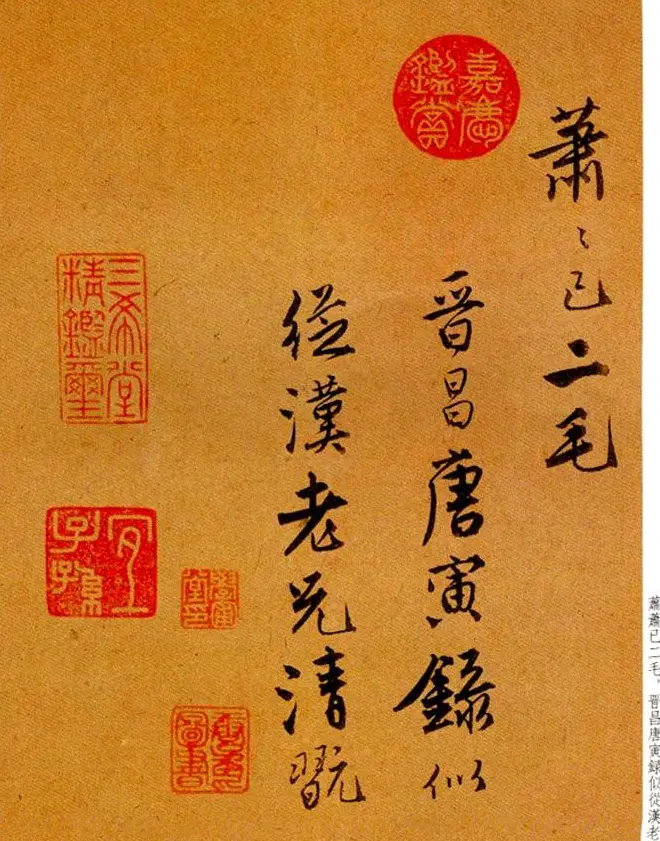 蕭〻已二毛
晉昌唐寅錄似
從漢老兄清翫
嘉慶鑑賞
三希堂精鑑璽
宜子孫
學圃堂印
蕭蕭已二毛。晉昌唐寅録似從漢老